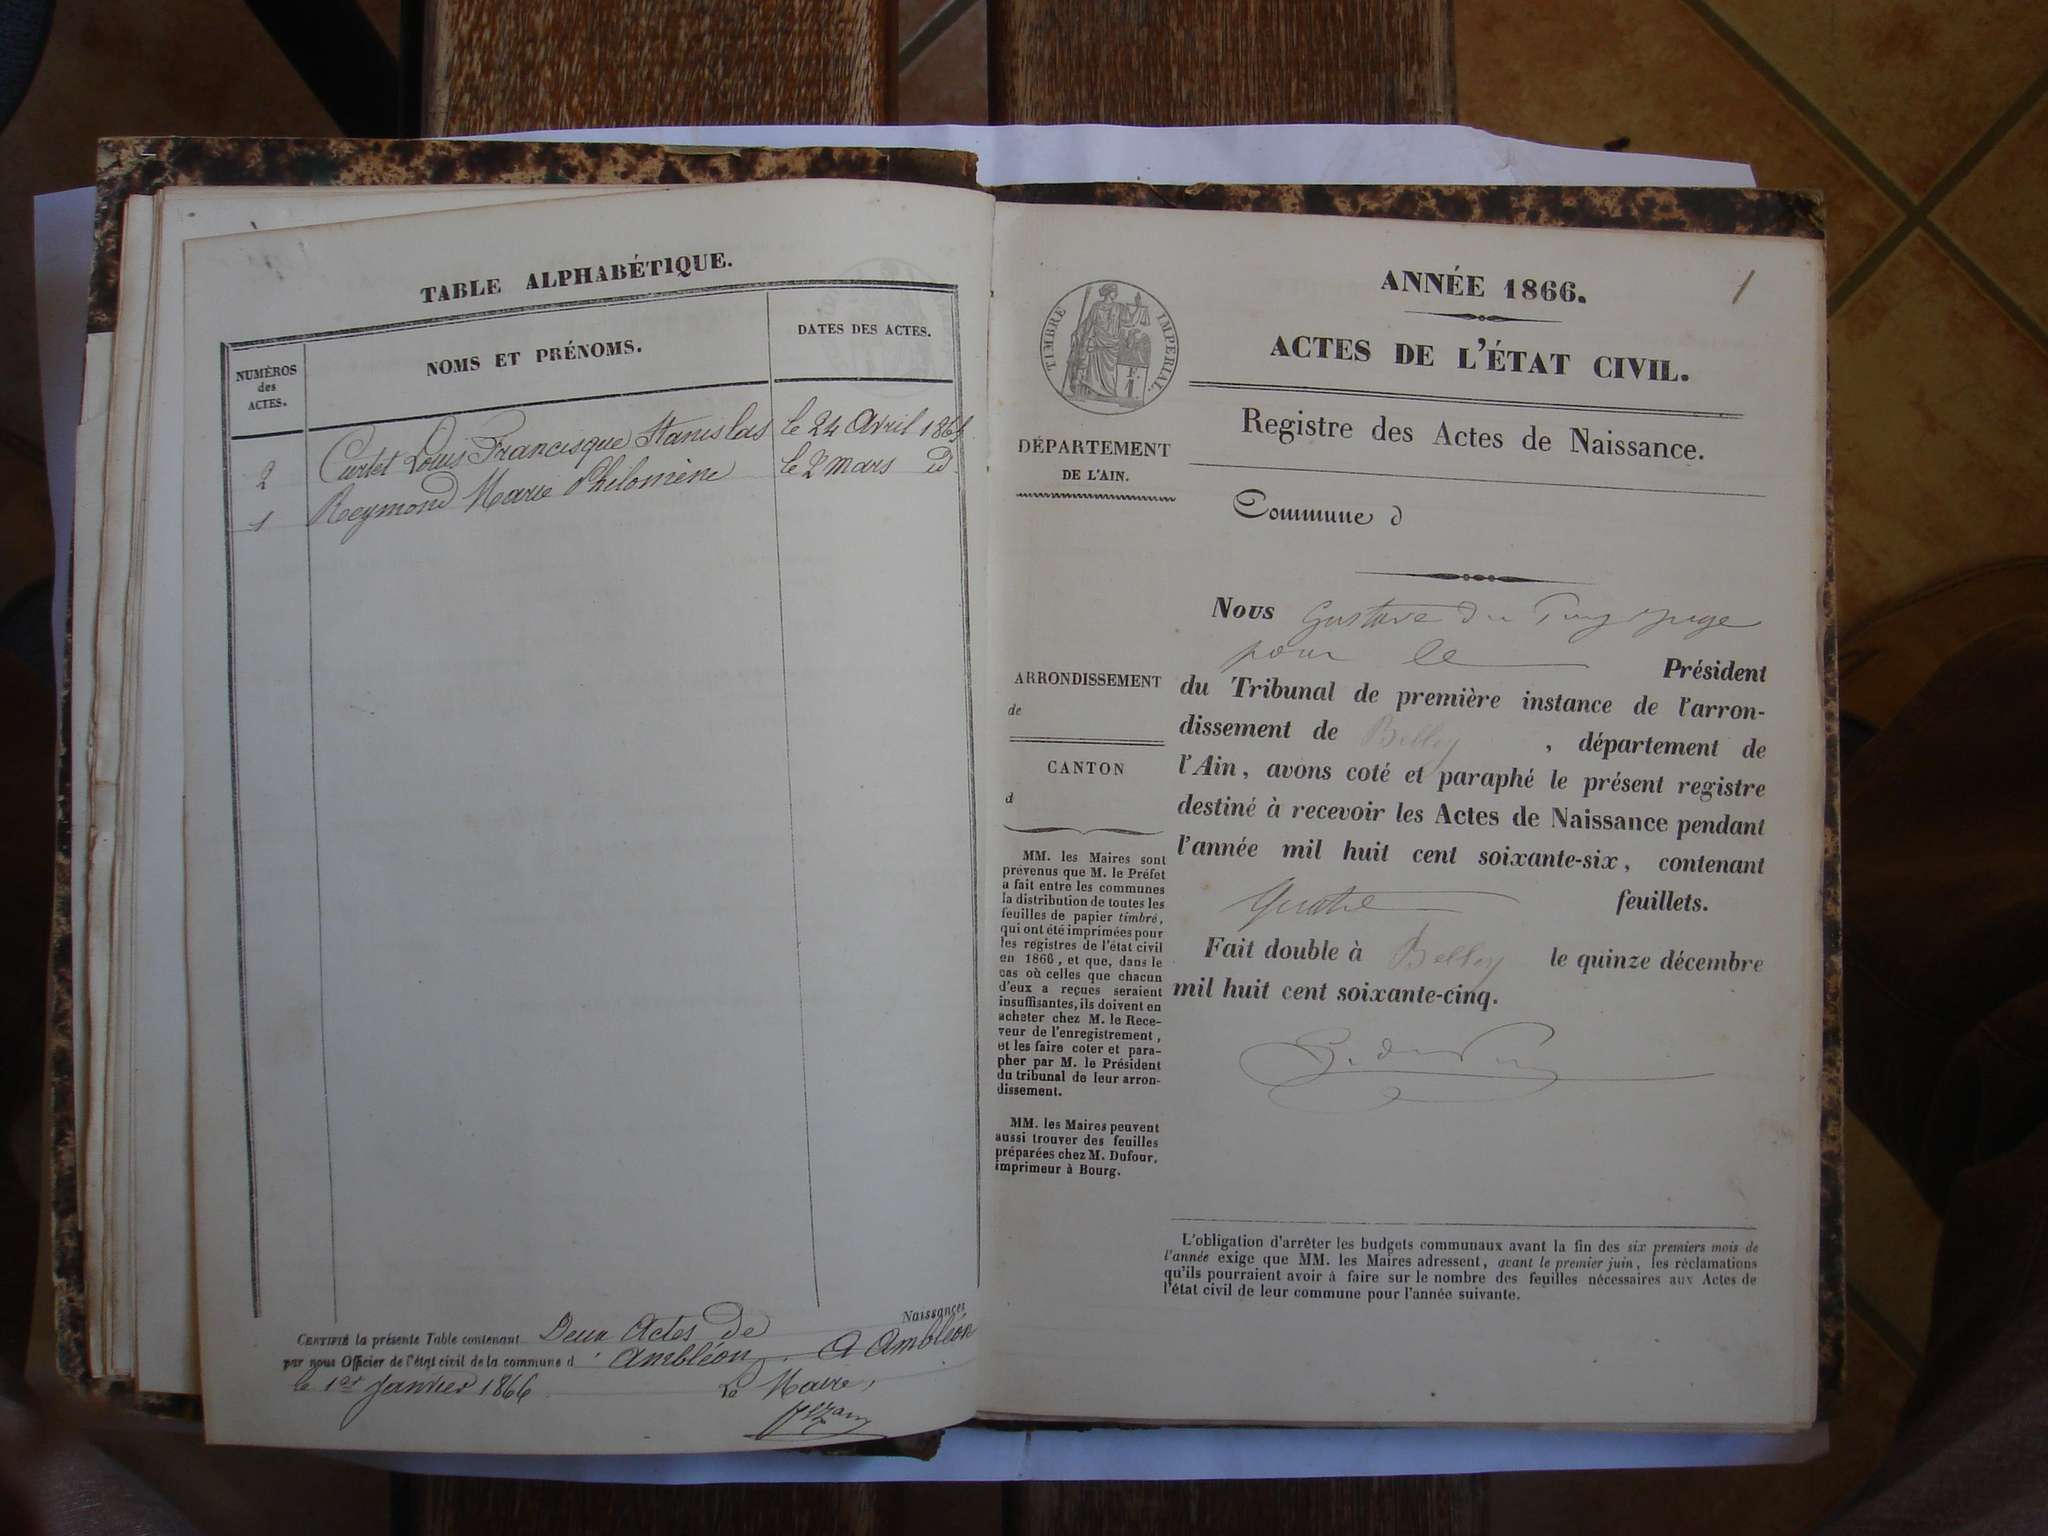 TABLE ALPHABÉTIQUE.
NUMÉROS
des
ACTES.
NOMS ET PRÉNOMS.
DATES DES ACTES.
2 Curtet Louis Francisque Stanislas le 24 Avril 1865
1 Reymond Marie Philomène le 2 mars id
CERTIFIÉ la présente Table contenant Deux Actes de Naissances
par nous Officier de l'état civil de la commune d'Ambléon. A Ambléon
le 1er Janvier 1866
Le Maire,
1
ANNÉE 1866.
ACTES DE L'ÉTAT CIVIL.
Registre des Actes de Naissance.
TIMBRE IMPÉRIAL.
DÉPARTEMENT
DE L'AIN.
Commune d
ARRONDISSEMENT
de
CANTON
d
MM. les Maires sont
prévenus que M. le Préfet
a fait entre les communes
la distribution de toutes les
feuilles de papier timbré,
qui ont été imprimées pour
les registres de l'état civil
en 1866, et que, dans le
cas où celles que chacun
d'eux a reçues seraient
insuffisantes, ils doivent en
acheter chez M. le Rece-
veur de l'enregistrement,
et les faire coter et para-
pher par M. le Président
du tribunal de leur arron-
dissement.
MM. les Maires peuvent
aussi trouver des feuilles
préparées chez M. Dufour,
imprimeur à Bourg.
Nous Gustave du Puy juge
pour le Président
du Tribunal de première instance de l'arron-
dissement de Belley, département de
l'Ain, avons coté et paraphé le présent registre
destiné à recevoir les Actes de Naissance pendant
l'année mil huit cent soixante-six, contenant
quatre feuillets.
Fait double à Belley le quinze décembre
mil huit cent soixante-cinq.
L'obligation d'arrêter les budgets communaux avant la fin des six premiers mois de
l'année exige que MM. les Maires adressent, avant le premier juin, les réclamations
qu'ils pourraient avoir à faire sur le nombre des feuilles nécessaires aux Actes de
l'état civil de leur commune pour l'année suivante.